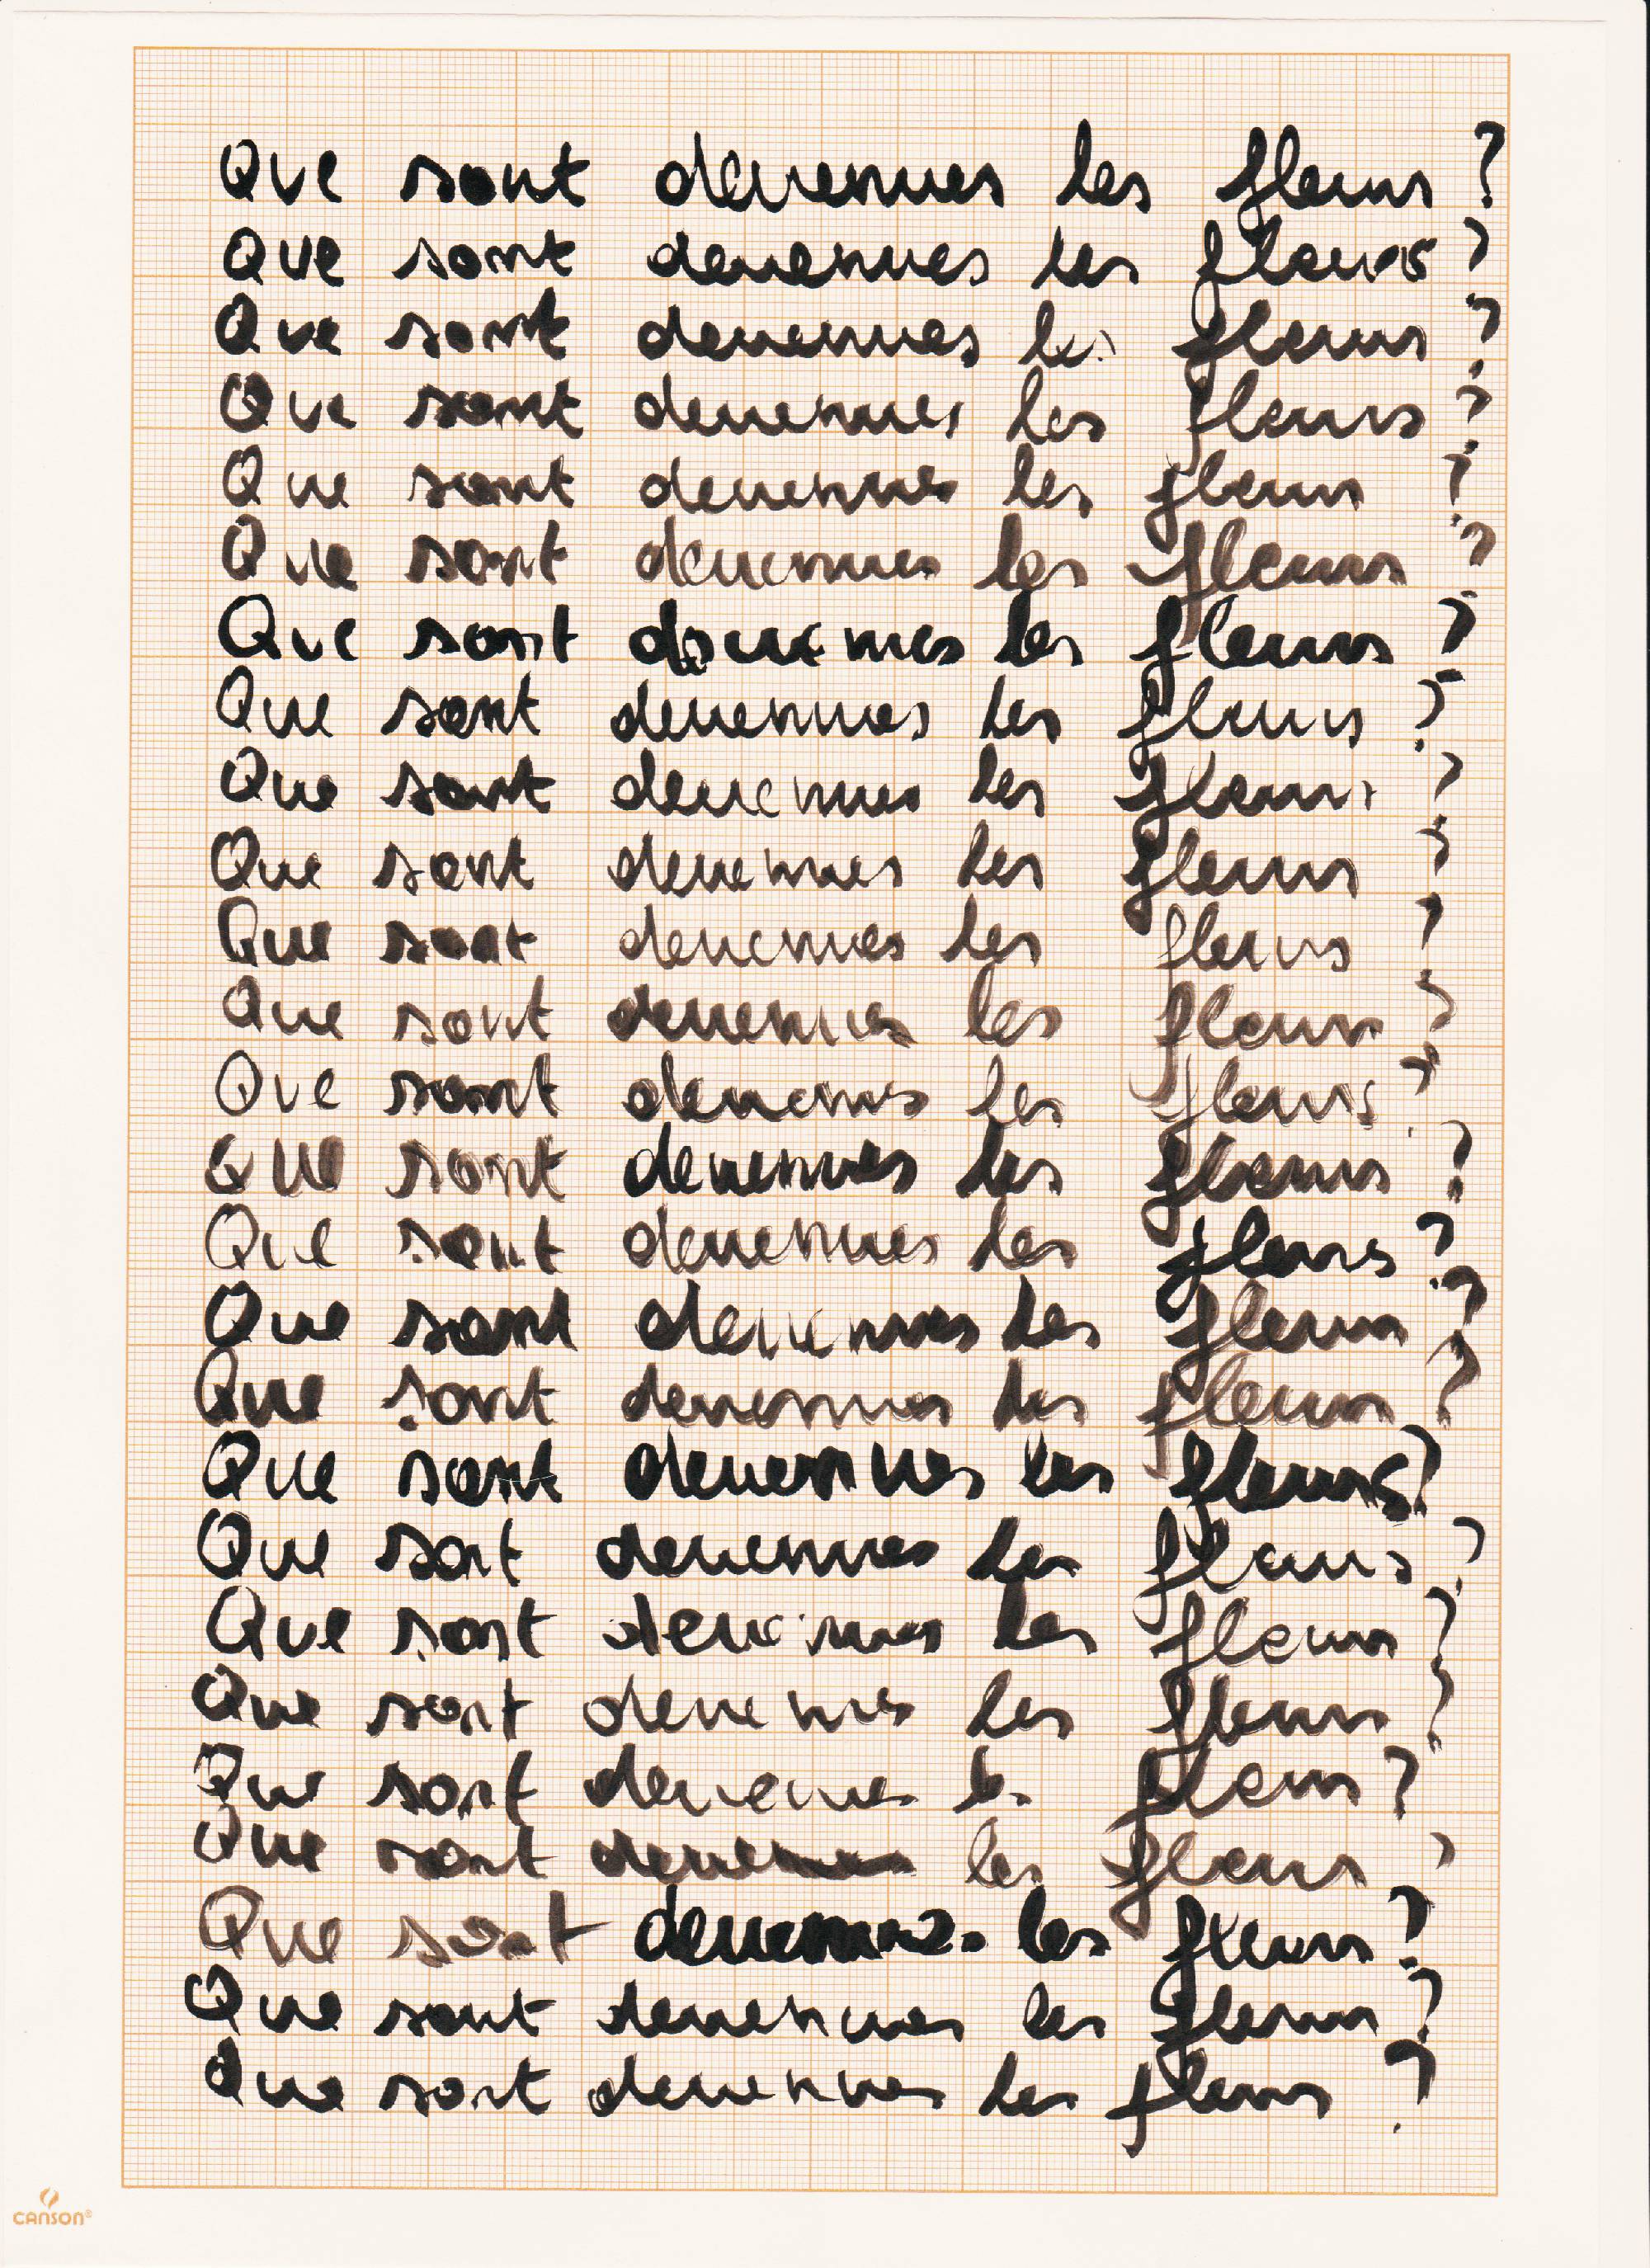 Que sont devenues les fleurs ?
Que sont devenues les fleurs ?
Que sont devenues les fleurs ?
Que sont devenues les fleurs ?
Que sont devenues les fleurs ?
Que sont devenues les fleurs ?
Que sont devenues les fleurs ?
Que sont devenues les fleurs ?
Que sont devenues les fleurs ?
Que sont devenues les fleurs ?
Que sont devenues les fleurs ?
Que sont devenues les fleurs ?
Que sont devenues les fleurs ?
Que sont devenues les fleurs ?
Que sont devenues les fleurs ?
Que sont devenues les fleurs ?
Que sont devenues les fleurs ?
Que sont devenues les fleurs ?
Que sont devenues les fleurs ?
Que sont devenues les fleurs ?
Que sont devenues les fleurs ?
Que sont devenues les fleurs ?
Que sont devenues les fleurs ?
Que sont devenues les fleurs ?
Que sont devenues les fleurs ?
Que sont devenues les fleurs ?
CANSON®